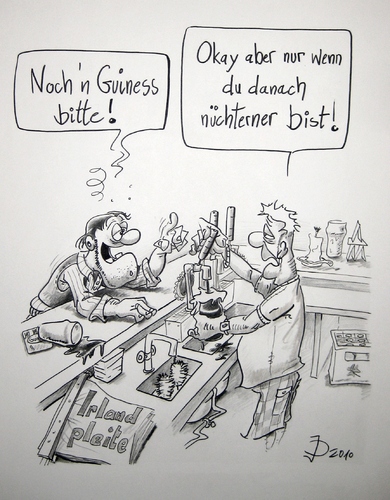 Noch'n Guiness
bitte!
Okay aber nur wenn
du danach
nüchterner bist!
Irland
pleite
JD 2010